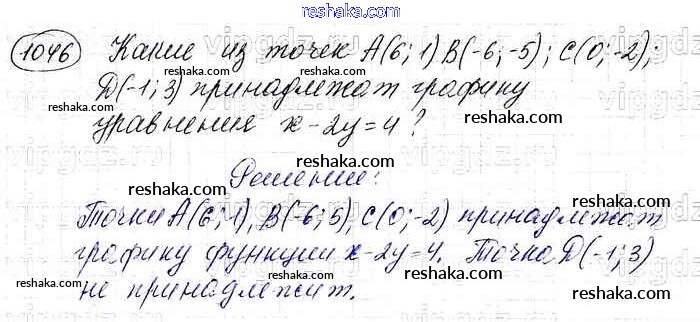 reshaka.com
1046 Какие из точек A(6; 1) B(-6; -5); C(0; -2);
reshaka.com reshaka.com reshaka.com
D(-1; 3) принадлежат графику
reshaka.com
уравнения x - 2y = 4?
reshaka.com reshaka.com
Решение:
reshaka.com reshaka.com reshaka.com
Точки A(6; 1), B(-6; 5), C(0; -2) принадлежат
reshaka.com
графику функции x - 2y = 4. Точка D(-1; 3)
reshaka.com reshaka.com reshaka.com
не принадлежит.
reshaka.com